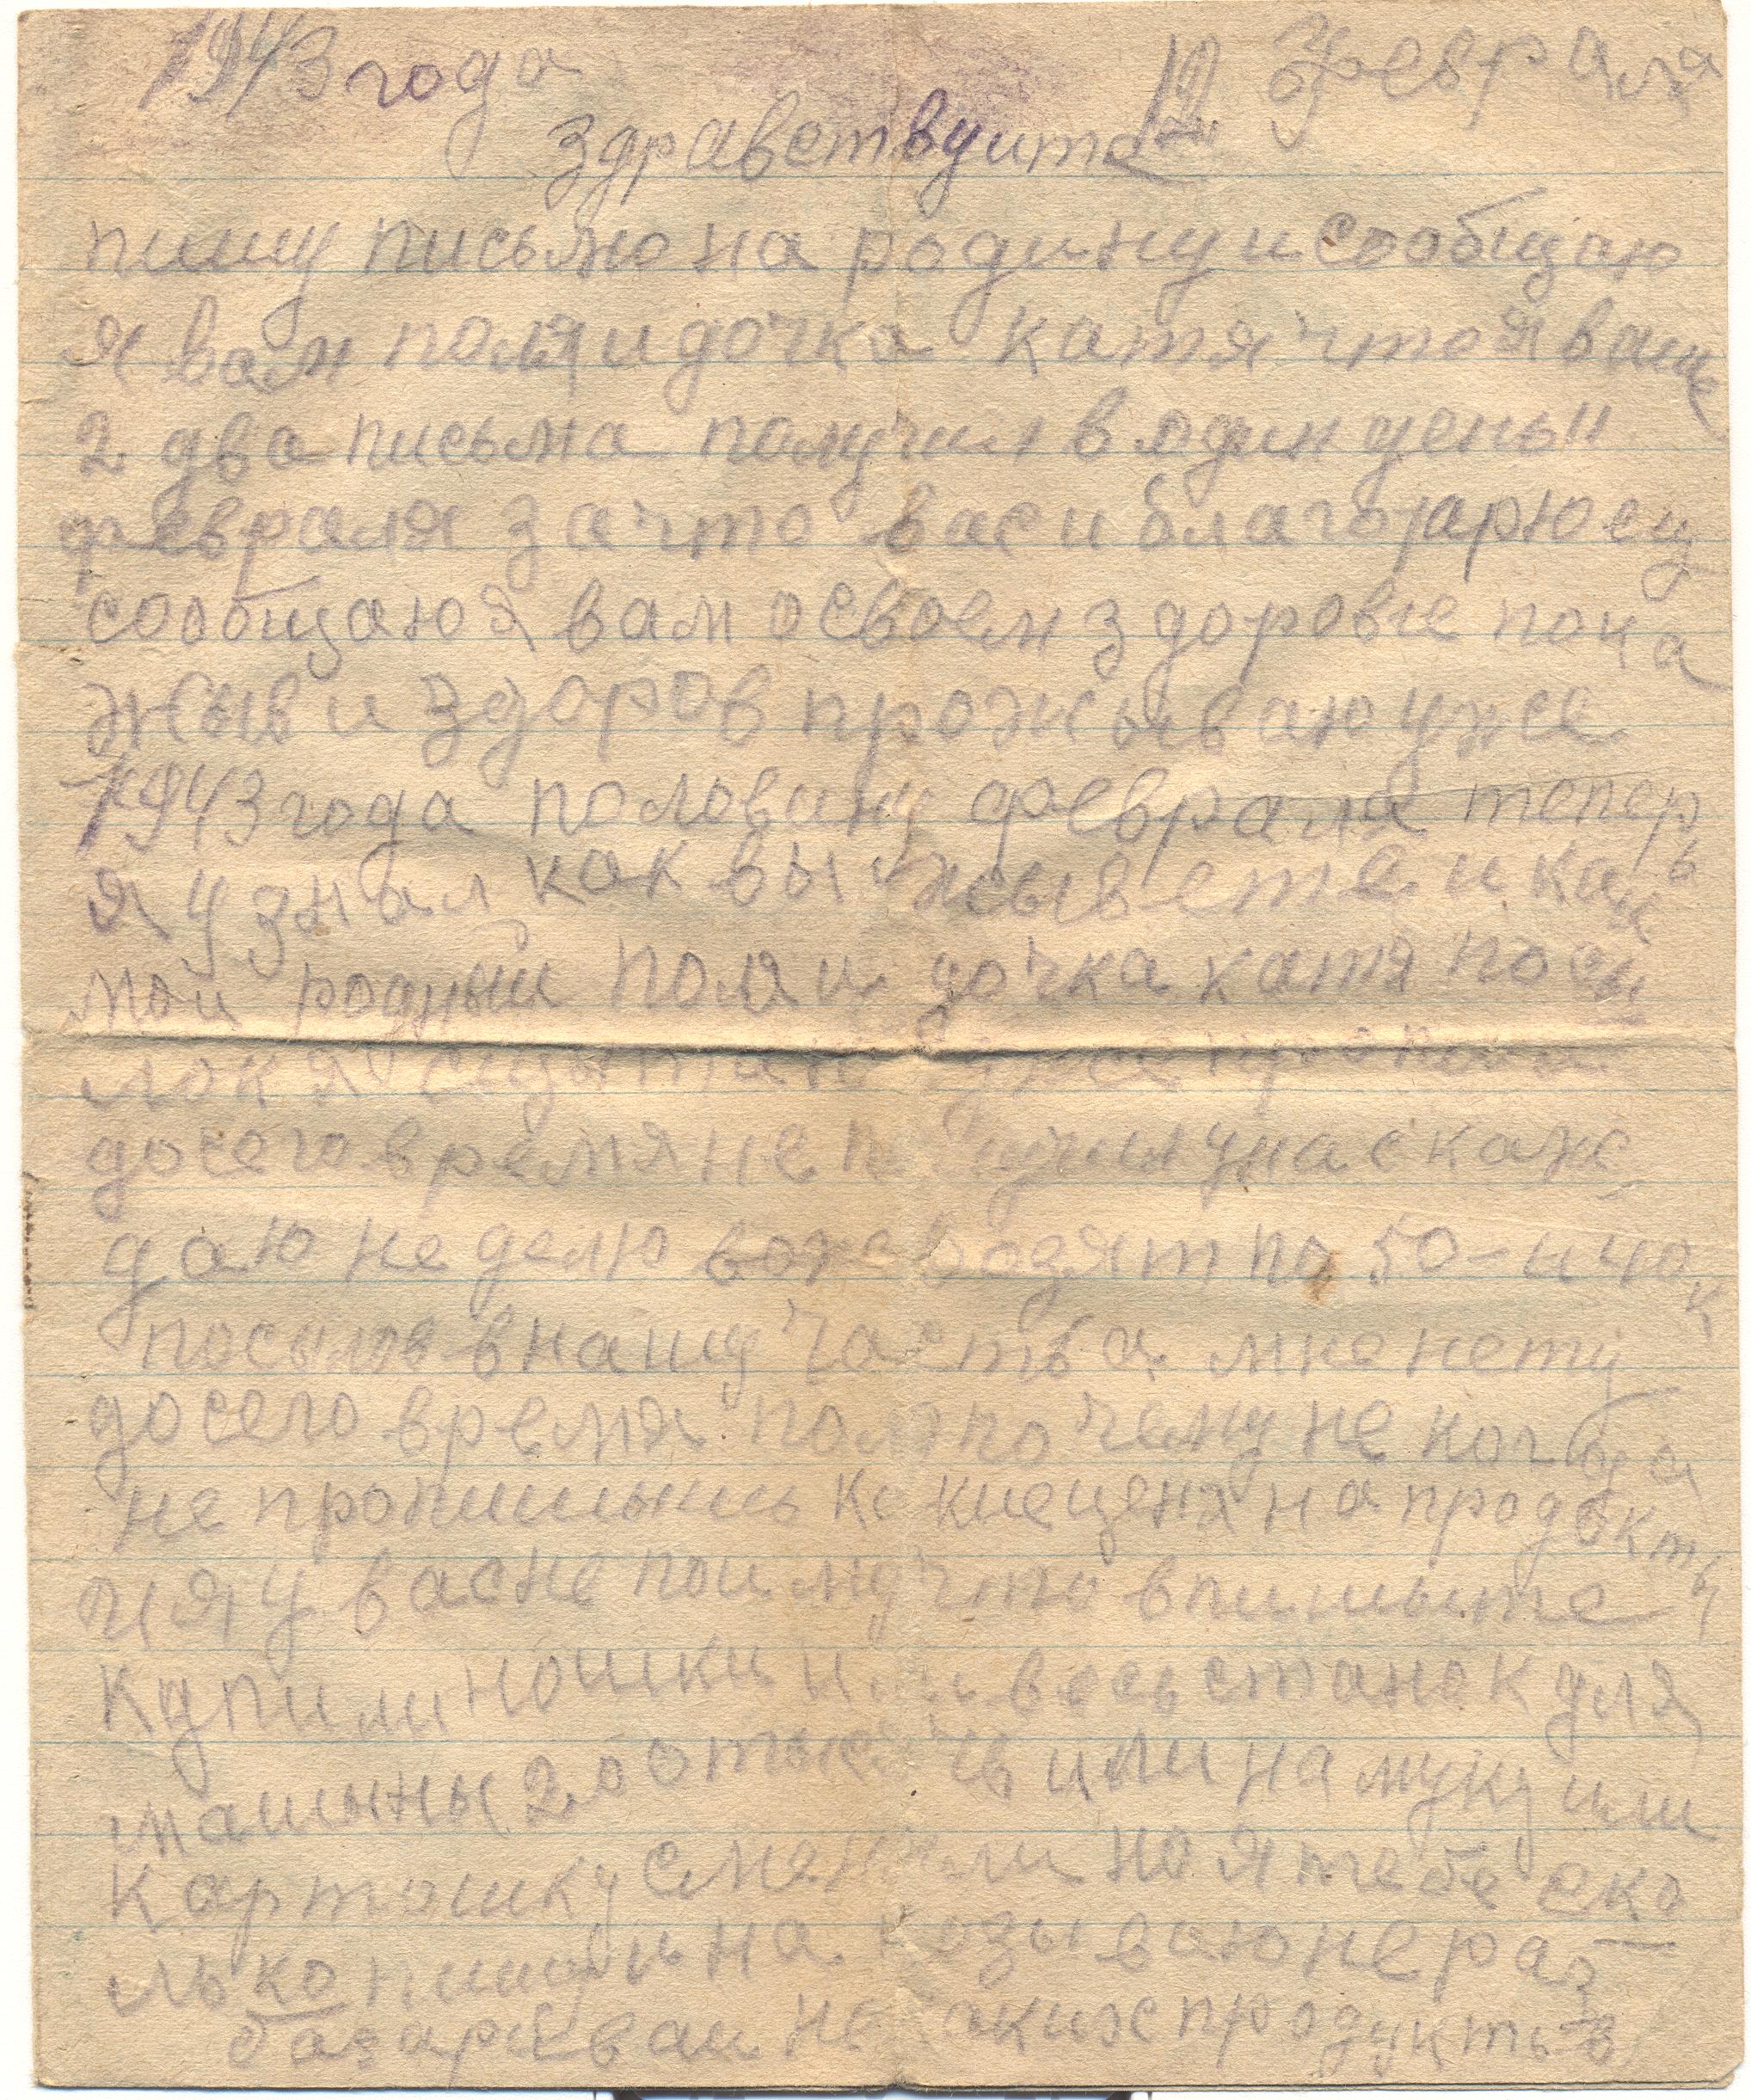 1943 года 12 февраля
Здраветвуите
пишу письмо на родину и сообщаю
я вам поля и дочка катя что я ваше
2 два письма получил в один день 11
февраля за что вас и благодарю ещ
сообщаю я вам о своем здоровье пока
жыв и здоров прожываю уже
1943 года половину февраля теперь
я узнал как вы жывете и как
мои родныи поля и дочка катя посы
лок я
до сего время не получил у нас каж
даю неделю возят по 50-и 40к
посылов в нашу часть а мне нету
до сего время поля почему не когда
не пропишышь какие цены на продукты
и я у вас не поиму что впишыте
купили ношки или весь станок для
машыны 200 тысечь или на муку или
картошку сменяли но я тебе ско
лько пишу и на казываю не раз
базаревай не каких продуктов